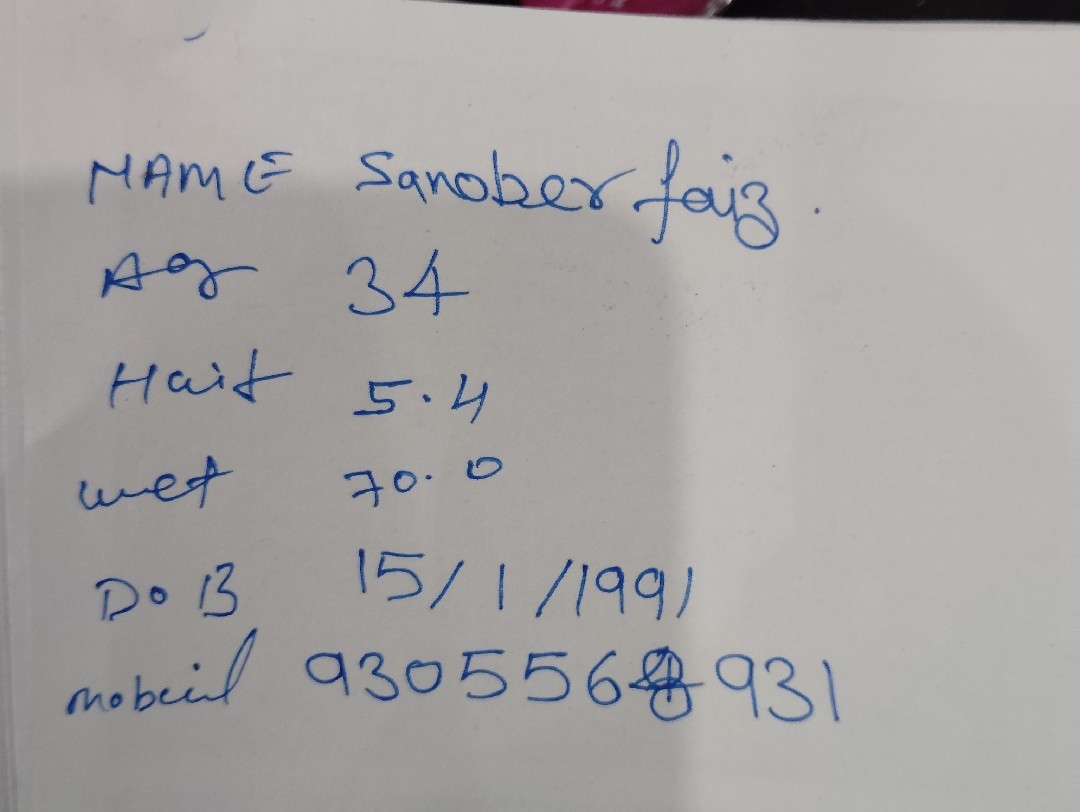 NAME Sanober faiz.
Ag 34
Hait 5.4
wet 70.0
DoB 15/1/1991
mobeil